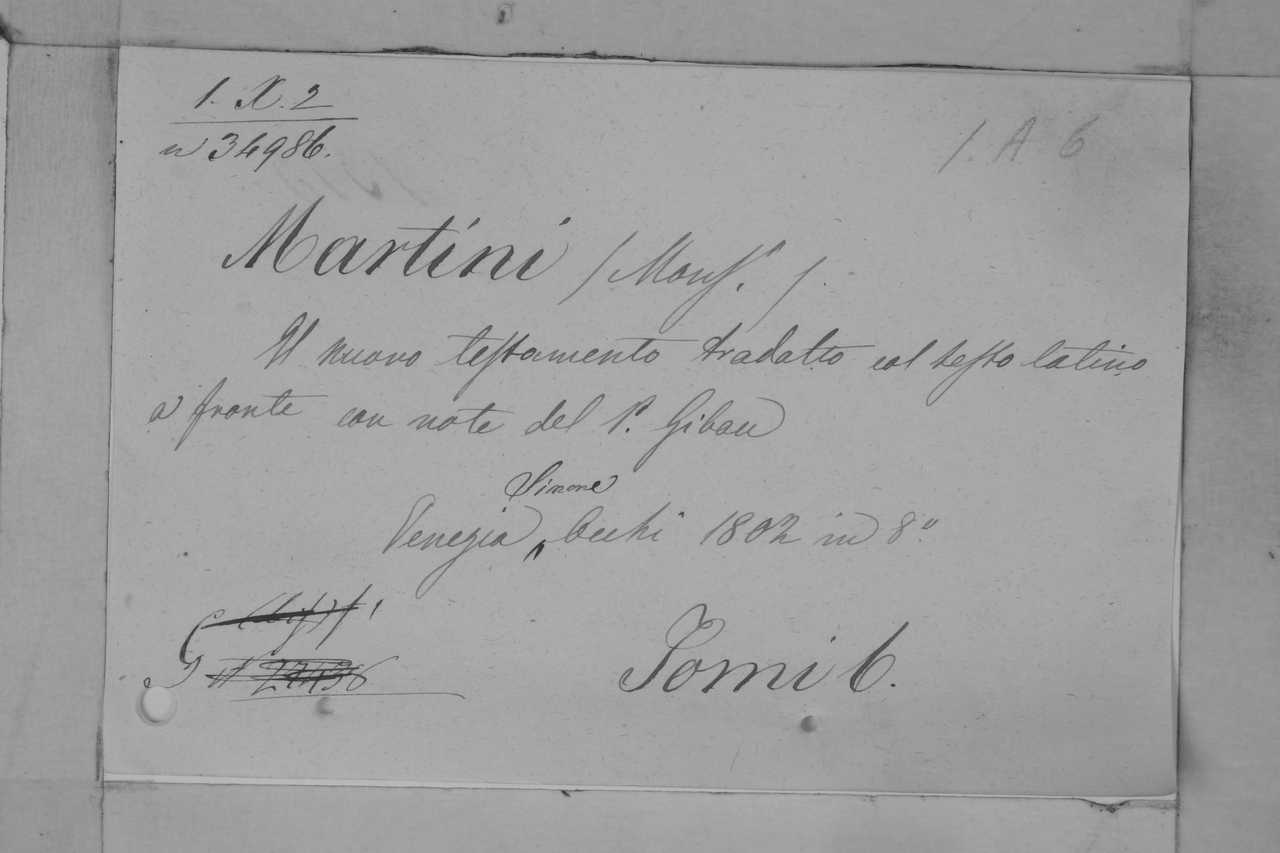 1. X. 2
n 34986.
1. A 6
Martini / Mons.r /.
Il nuovo testamento tradatto col testo latino
a fronte con note del P. Gibau
Simone
Venezia Occhi 1802 in 8º
G
n 27436
Tomi 6.